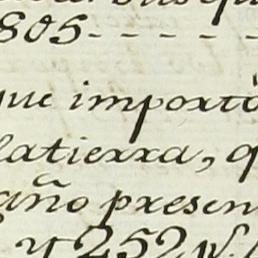 805- - - - -
que importó
latierra, q
año presen
y 252 p.